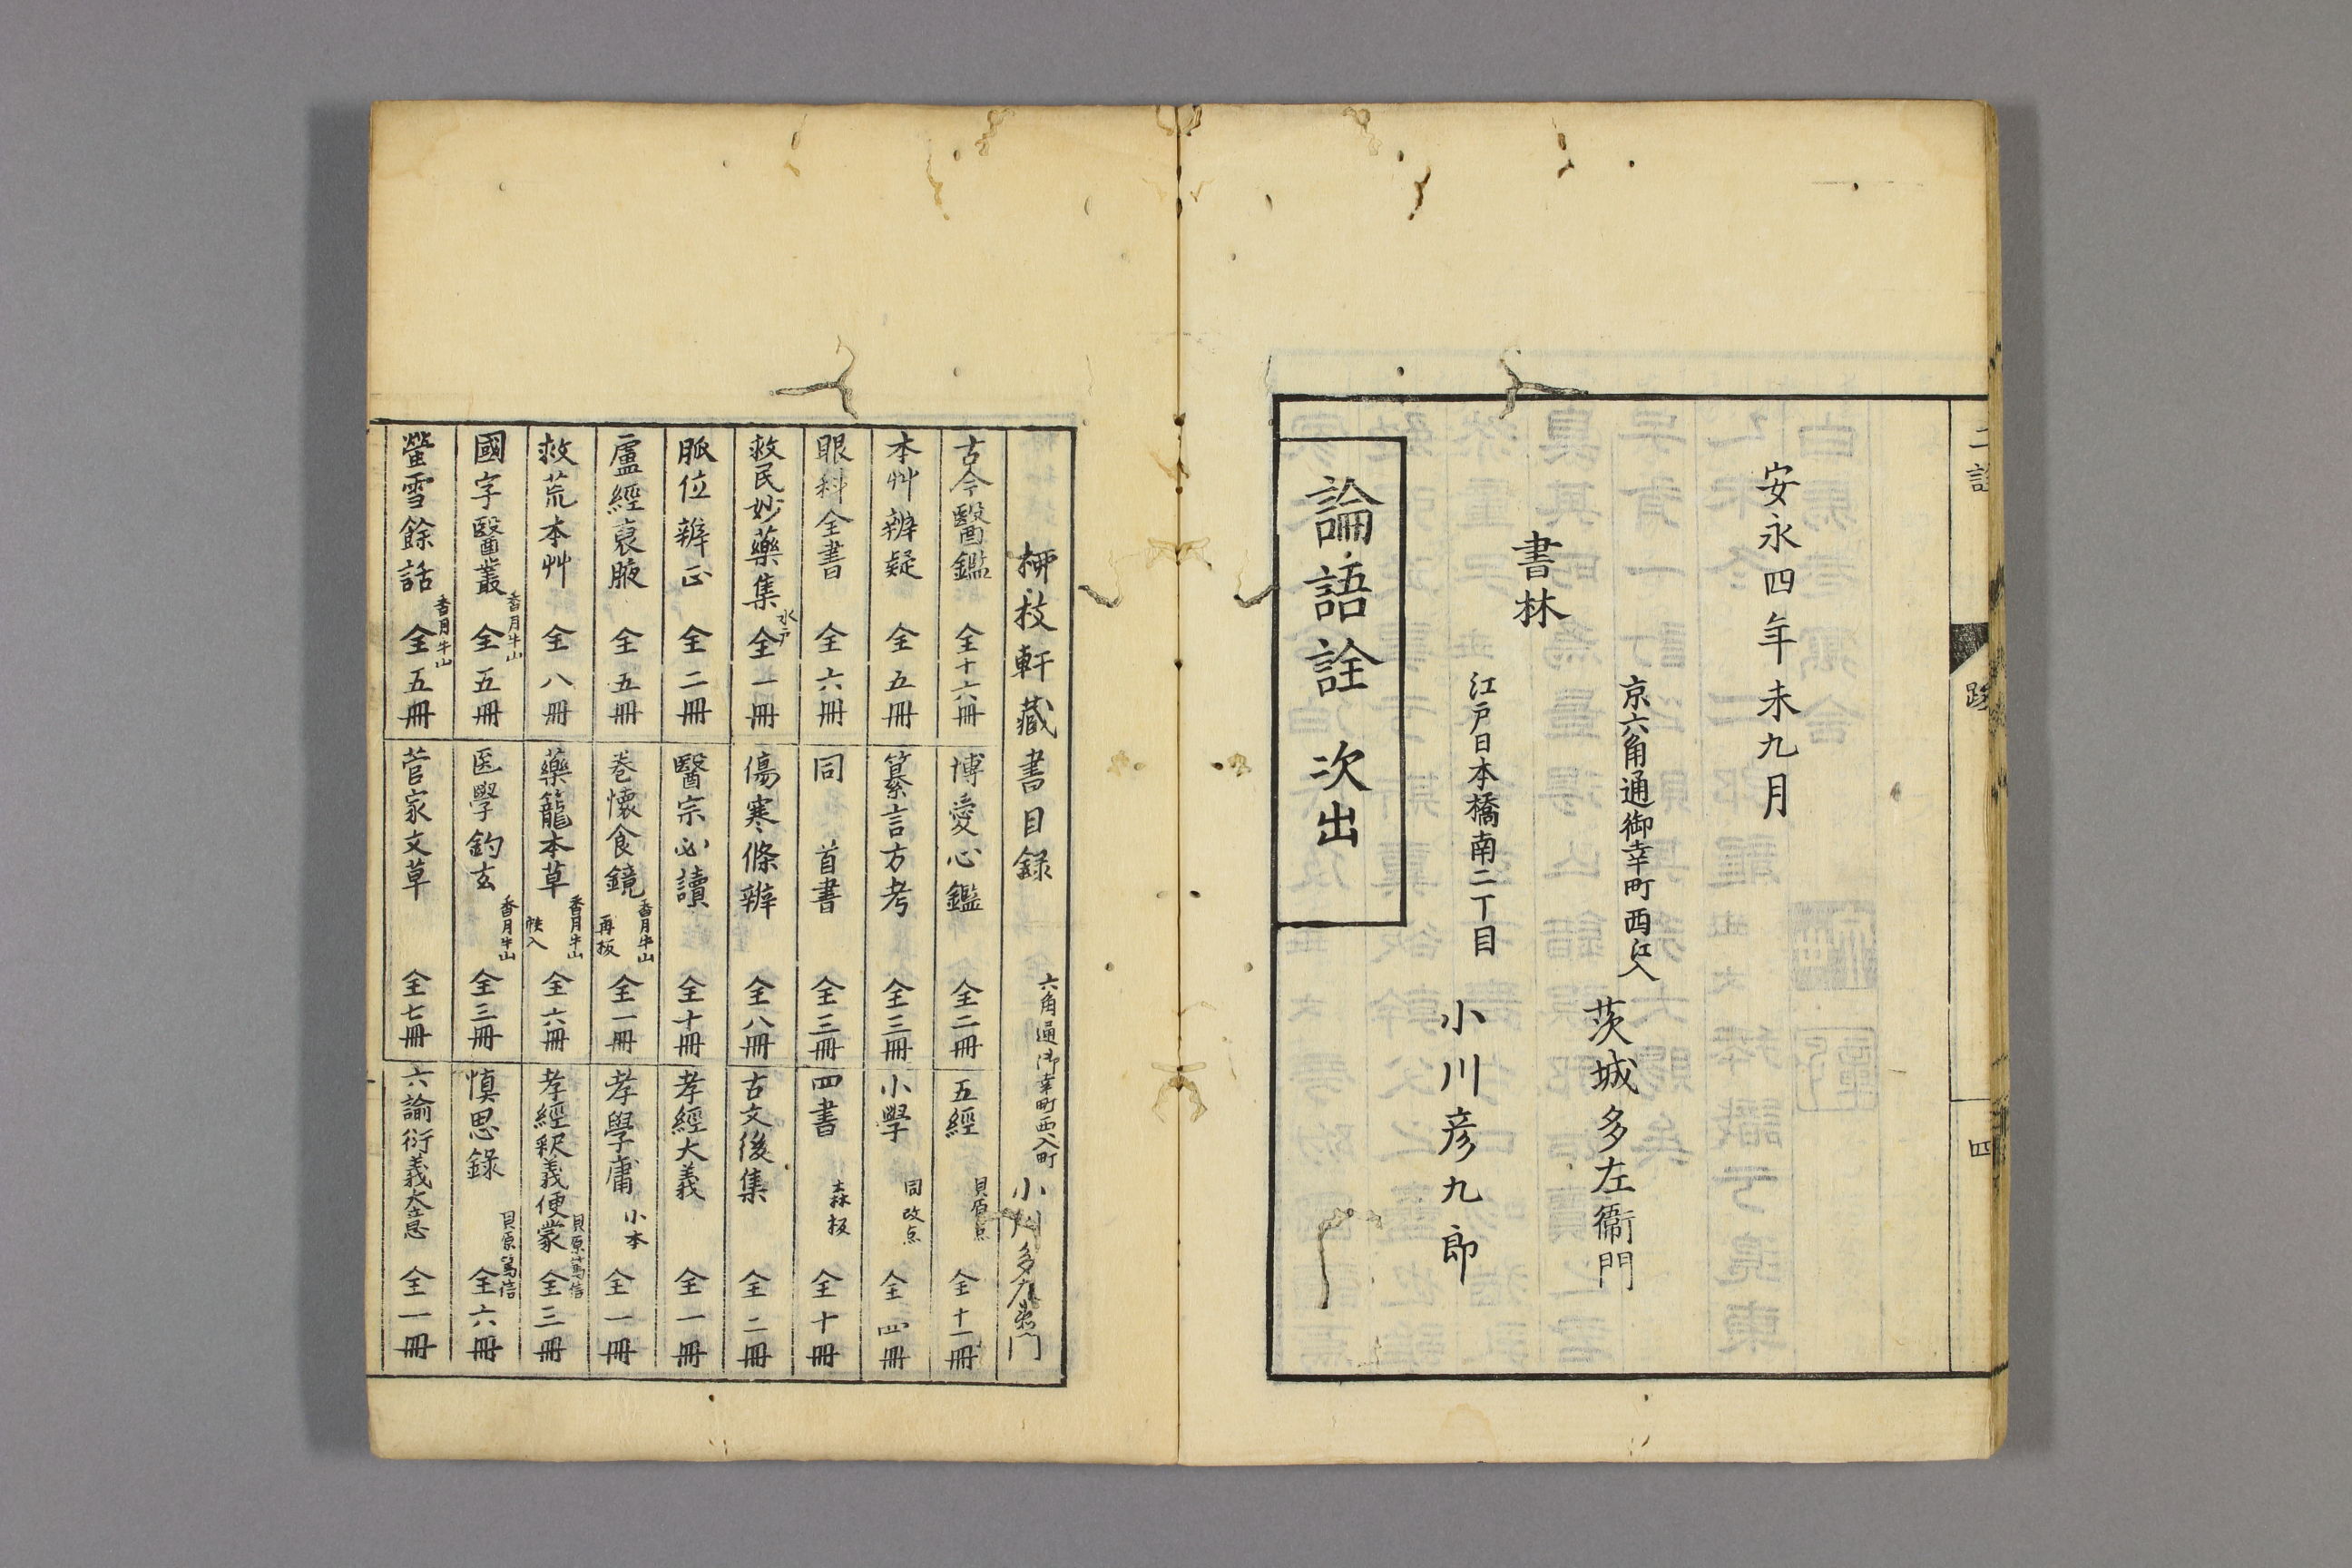 跋
四
安永四年未九月
京六角通御幸町西江入
茨城多左衞門
書林
江戸日本橋南二丁目
小川彦九郎
論語詮 次出
柳枝軒藏書目録
六角通御幸町西入町
小川多左衞門
古今醫鑑 全十六冊
博愛心鑑 全二冊
五經 貝原点 全十一冊
本艸辨疑 全五冊
纂言方考 全三冊
小學 同改点 全四冊
眼科全書 全六冊
同 首書 全三冊
四書 森板 全十冊
救民妙藥集 水戸 全一冊
傷寒條辨 全八冊
古文後集 全二冊
脈位辨正 全二冊
醫宗必讀 全十冊
孝經大義 全一冊
盧經裒腋 全五冊
巻懷食鏡 香月牛山 再板 全一冊
孝學庸 小本 全一冊
救荒本艸 全八冊
藥籠本草 香月牛山 帙入 全六冊
孝經釈義便蒙 貝原篤信 全三冊
國字醫叢 香月牛山 全五冊
医學鈎玄 香月牛山 全三冊
慎思錄 貝原篤信 全六冊
螢雪餘話 香月牛山 全五冊
菅家文草 全七冊
六諭衍義大意 全一冊